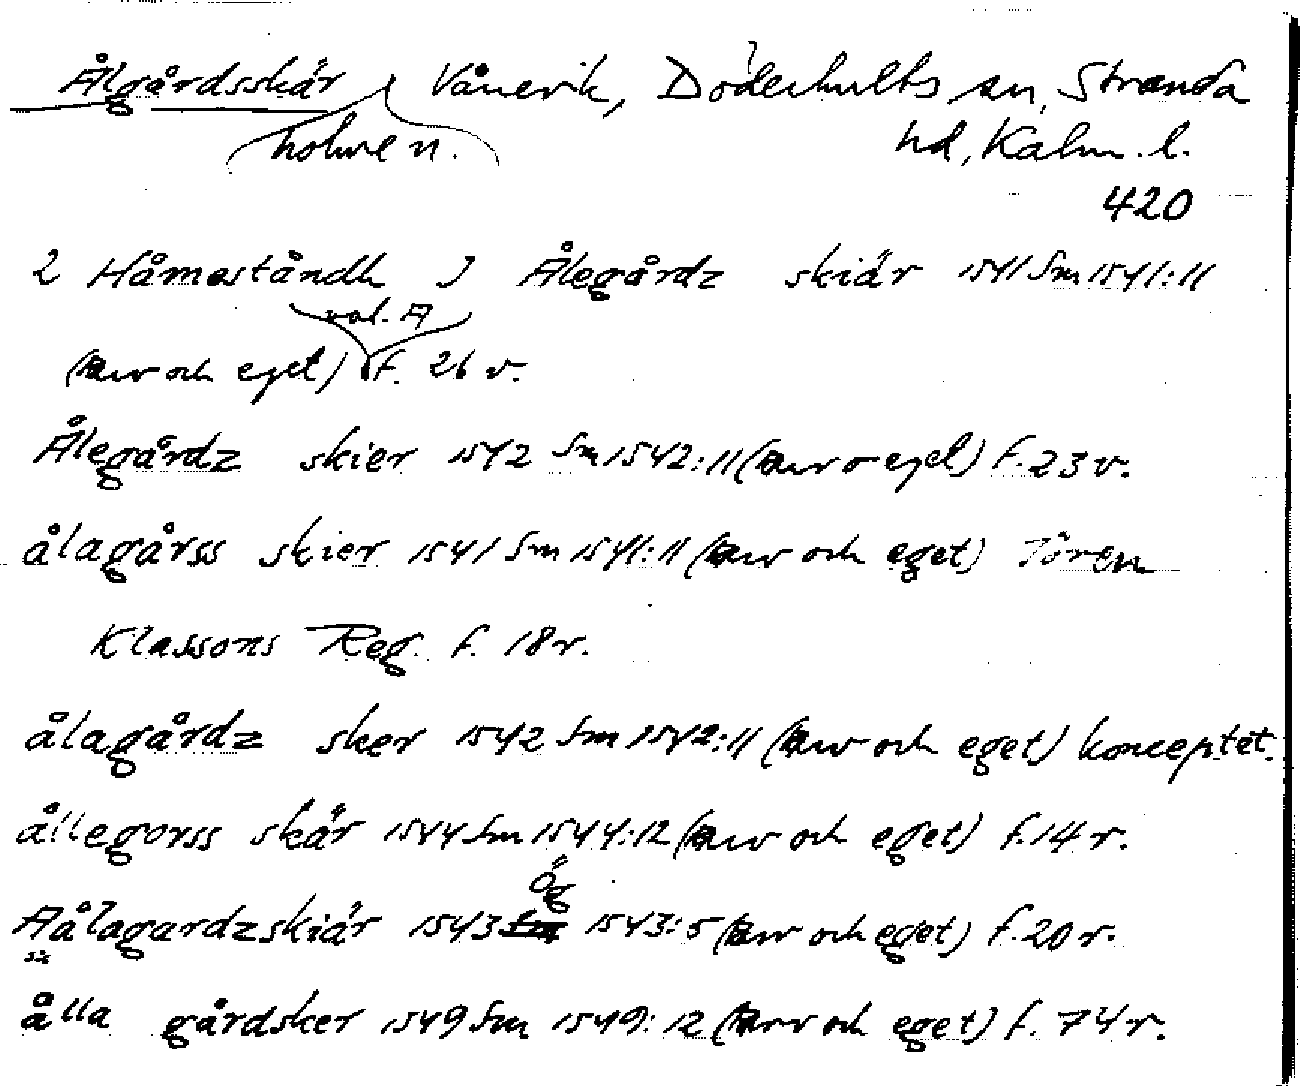 Ålgårdsskär Vånevik, Döderhults sn, Stranda
holmen. hd, Kalm. l.
420
2 Håmeståndh J Ålegårdz skiär 1541 Sm 1541:11
vol. A
(arv och eget) f. 26 v.
Ålegårdz skier 1542 Sm 1542:11 (arv o eget) f. 23 v.
ålagårss skier 1541 Sm 1541:11 (arv och eget) Jören
Klassons Reg. f. 18 r.
ålagårdz sker 1542 Sm 1542:11 (arv och eget) konceptet.
ållegorss skär 1544 Sm 1544:12 (arv och eget) f. 14 r.
Ög
Aålagardzskiär 1543 1543:5 (arv och eget) f. 20 r.
ålla gårdsker 1549 Sm 1549:12 (arv och eget) f. 74 r.